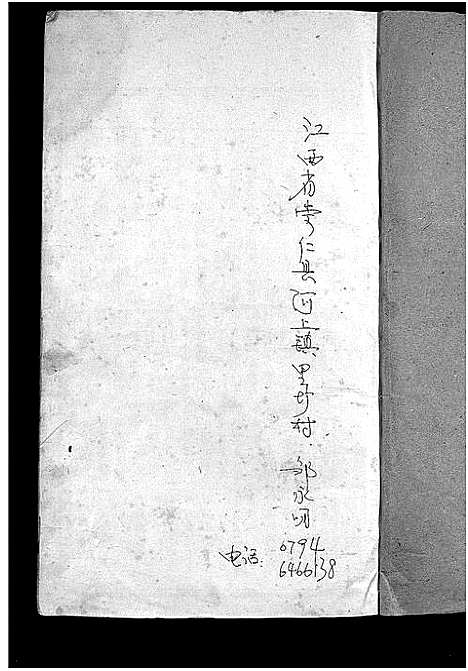 江西省崇仁县河上镇里圩村. 邹永明
电话: 0794
6466138